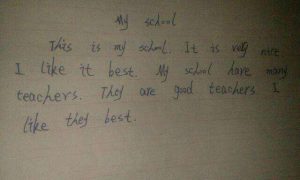 My school
This is my school. It is very nice.
I like it best. My school have many
teachers. They are good teachers I
like they best.